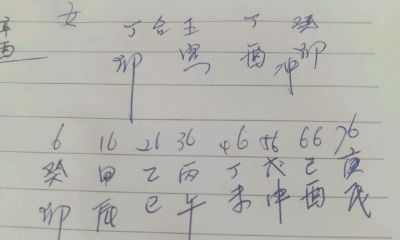 女 丁合壬 丁 癸
酉 卯 寅 酉冲卯
6 16 26 36 46 56 66 76
癸 甲 乙 丙 丁 戊 己 庚
卯 辰 巳 午 未 申 酉 戌